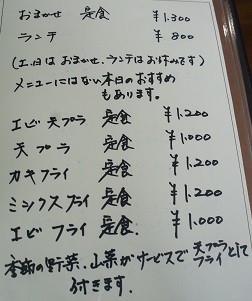 おまかせ 定食 ¥1.300
ランチ ¥800
(土、日はおまかせ、ランチはお休みです)
メニューにはない本日のおすすめ
もあります。
エビ天プラ 定食 ¥1.200
天プラ 定食 ¥1.000
カキフライ 定食 ¥1.200
ミックスフライ 定食 ¥1.200
エビフライ 定食. ¥1.000
季節の野菜、山菜がサービスで天プラ フライとして
付きます.